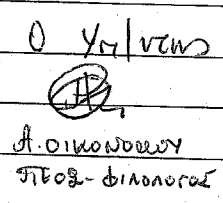 Ο Υπ/ντης
Α. ΟΙΚΟΝΟΜΟΥ
ΠΕ02-ΦΙΛΟΛΟΓΟΣ